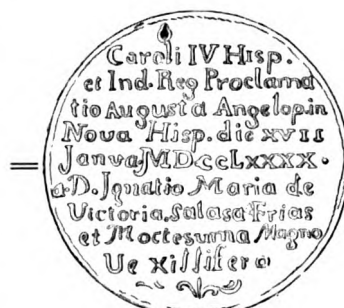 Caroli IV Hisp.
et Ind. Reg Proclama
tio Augusta Angelop.in
Nova Hisp. die XVII
Janua. MDCCLXXXX.
a D. Jgnatio Maria de
Victoria, Salasa Frias
et Moctesuma Magno
Ve xillifero